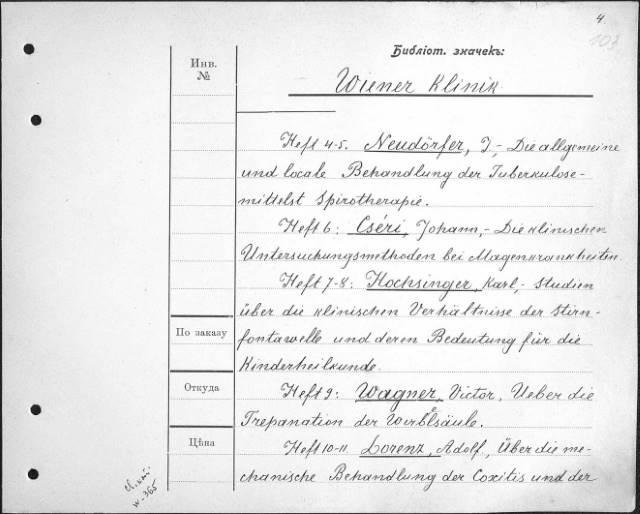 4.
103
Библіот. значекъ:
Инв.
№
Wiener Klinik
Heft 4-5. Neudörfer, J,- Die allgemeine
und locale Behandlung der Tuberkulose-
mittelst Spirotherapie.
Heft 6: Cséri, Johann,- Die klinischen
Untersuchungsmethoden bei Magenkrankheiten.
Heft 7-8: Hochsinger, Karl,- Studien
über die klinischen Verhältnisse der Stirn-
По заказу
fontawelle und deren Bedeutung für die
Kinderheilkunde.
Откуда
Heft 9: Wagner, Victor, Ueber die
Trepanation der Werbelsäule.
Цѣна
Heft 10-11. Lorenz, Adolf, Über die me-
chanische Behandlung der Coxitis und der
w-365